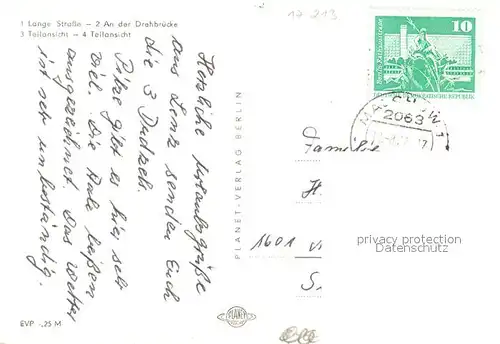 1 Lange Straße – 2 An der Drehbrücke
3 Teilansicht – 4 Teilansicht
17 213
Herzliche Urlaubsgrüße
aus Lenz senden Euch
die 3 Dudzels.
Pilze gibt es hier sehr
viel. Die Aale beißen
ausgezeichnet. Das Wetter
ist sehr unbeständig.
PLANET-VERLAG BERLIN
10
DEUTSCHE DEMOKRATISCHE REPUBLIK
2063
Familie
H
1601
S.
privacy protection
Datenschutz
PLANET
EVP -,25 M